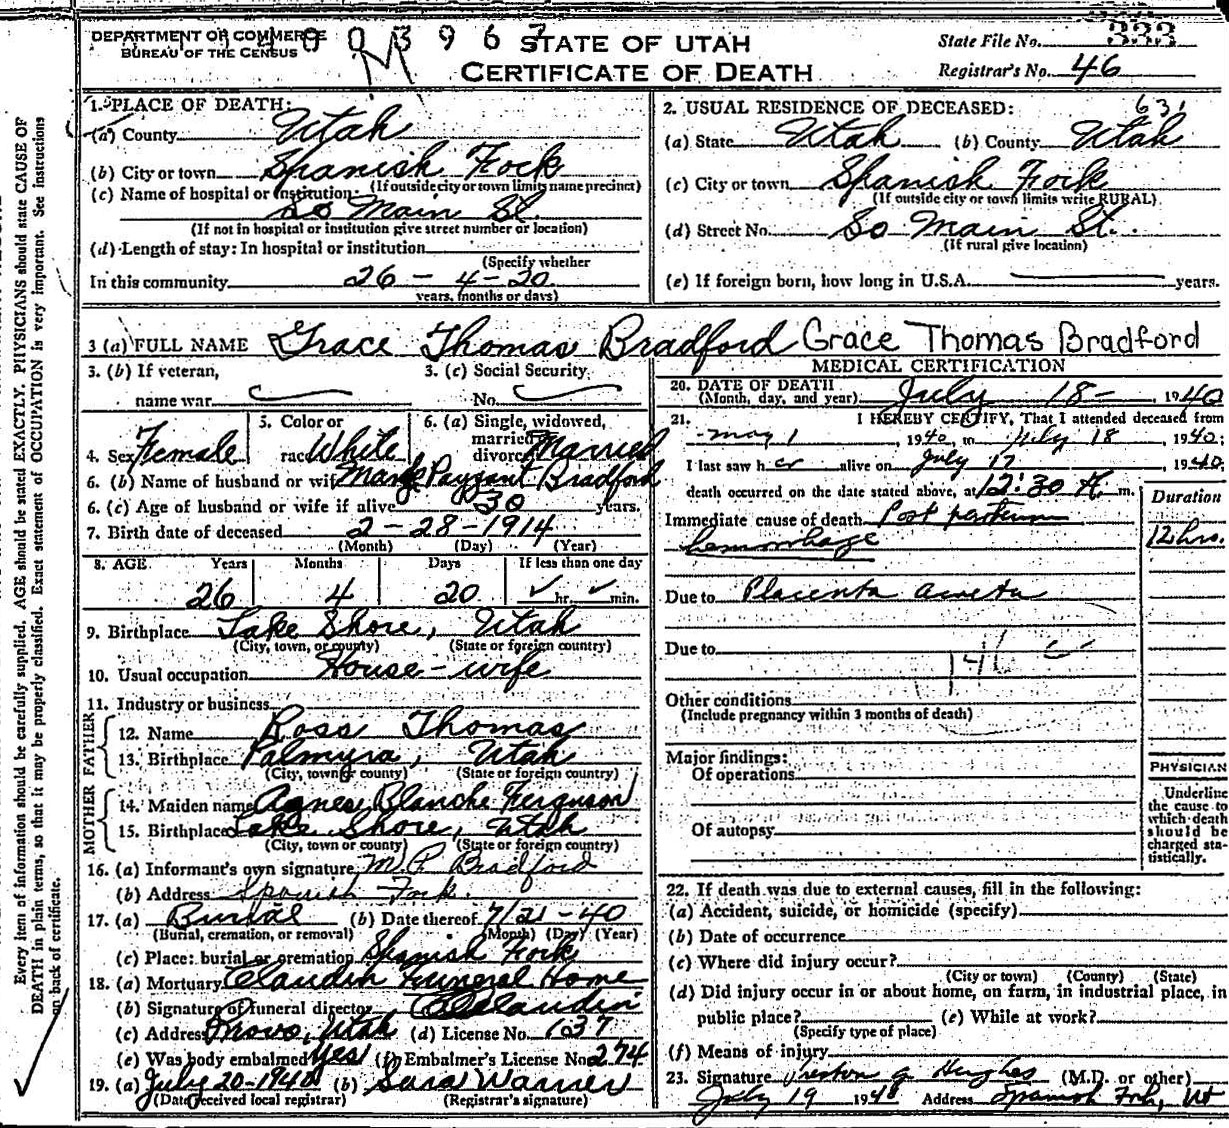 DEPARTMENT OF COMMERCE
BUREAU OF THE CENSUS
STATE OF UTAH
CERTIFICATE OF DEATH
State File No. 333
Registrar's No. 46
1. PLACE OF DEATH:
(a) County Utah
(b) City or town Spanish Fork
(If outside city or town limits name precinct)
(c) Name of hospital or institution:
So Main St.
(If not in hospital or institution give street number or location)
(d) Length of stay: In hospital or institution
(Specify whether
In this community 26 - 4 - 20
years, months or days)
2. USUAL RESIDENCE OF DECEASED: 631
(a) State Utah (b) County Utah
(c) City or town Spanish Fork
(If outside city or town limits write RURAL)
(d) Street No. So Main St.
(If rural give location)
(e) If foreign born, how long in U.S.A. years.
3 (a) FULL NAME Grace Thomas Bradford Grace Thomas Bradford
3. (b) If veteran,
name war
3. (c) Social Security
No.
4. Sex Female
5. Color or
race White
6. (a) Single, widowed,
married,
divorced Married
6. (b) Name of husband or wife Bradford
6. (c) Age of husband or wife if alive 30 years.
7. Birth date of deceased 2-28-1914
(Month) (Day) (Year)
8. AGE Years Months Days If less than one day
26 4 20 hr. min.
9. Birthplace Lake Shore, Utah
(City, town, or county) (State or foreign country)
10. Usual occupation House-wife
11. Industry or business
FATHER
12. Name Ross Thomas
13. Birthplace Palmyra, Utah
(City, town or county) (State or foreign country)
MOTHER
14. Maiden name Agnes Blanche Ferguson
15. Birthplace Lake Shore, Utah
(City, town or county) (State or foreign country)
16. (a) Informant's own signature M. P. Bradford
(b) Address Spanish Fork
17. (a) Burial (b) Date thereof 7/21-40
(Burial, cremation, or removal) (Month) (Day) (Year)
(c) Place: burial or cremation Spanish Fork
18. (a) Mortuary Claudin Funeral Home
(b) Signature of funeral director Claudin
(c) Address Provo, Utah (d) License No. 137
(e) Was body embalmed Yes (f) Embalmer's License No. 274
19. (a) July 20-1940 (b) Sara Warner
(Date received local registrar) (Registrar's signature)
MEDICAL CERTIFICATION
20. DATE OF DEATH
(Month, day, and year) July 18- , 1940
21. I HEREBY CERTIFY, That I attended deceased from
May 1 , 1940, to July 18 , 1940;
I last saw her alive on July 17 , 1940
death occurred on the date stated above, at 12:30 A. m.
Duration
Immediate cause of death Post partum
hemorrhage 12 hrs.
Due to Placenta acreta
Due to
146
Other conditions
(Include pregnancy within 3 months of death)
Major findings:
Of operations
Of autopsy
PHYSICIAN
Underline
the cause to
which death
should be
charged sta-
tistically.
22. If death was due to external causes, fill in the following:
(a) Accident, suicide, or homicide (specify)
(b) Date of occurrence
(c) Where did injury occur?
(City or town) (County) (State)
(d) Did injury occur in or about home, on farm, in industrial place, in
public place? (e) While at work?
(Specify type of place)
(f) Means of injury
23. Signature Preston G Hughes (M.D. or other)
July 19 1940 Address Spanish Fork, Ut
Every item of information should be carefully supplied. AGE should be stated EXACTLY. PHYSICIANS should state CAUSE OF
DEATH in plain terms, so that it may be properly classified. Exact statement of OCCUPATION is very important. See instructions
on back of certificate.